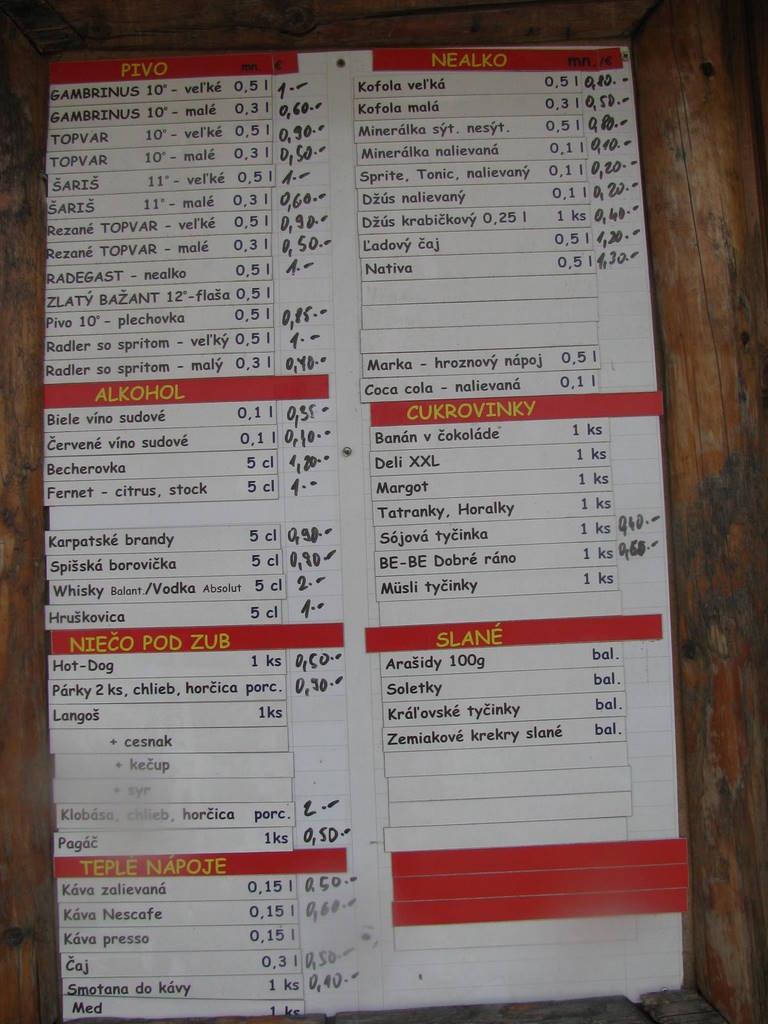 PIVO mn. €
GAMBRINUS 10° - veľké 0,5 l 1.-
GAMBRINUS 10° - malé 0,3 l 0,60.-
TOPVAR 10° - veľké 0,5 l 0,90.-
TOPVAR 10° - malé 0,3 l 0,50.-
ŠARIŠ 11° - veľké 0,5 l 1.-
ŠARIŠ 11° - malé 0,3 l 0,60.-
Rezané TOPVAR - veľké 0,5 l 0,90.-
Rezané TOPVAR - malé 0,3 l 0,50.-
RADEGAST - nealko 0,5 l 1.-
ZLATÝ BAŽANT 12°-flaša 0,5 l
Pivo 10° - plechovka 0,5 l 0,85.-
Radler so spritom - veľký 0,5 l 1.-
Radler so spritom - malý 0,3 l
ALKOHOL
Biele víno sudové 0,1 l 0,35.-
Červené víno sudové 0,1 l
Becherovka 5 cl 1,20.-
Fernet - citrus, stock 5 cl 1.-
Karpatské brandy 5 cl 0,90.-
Spišská borovička 5 cl
Whisky Balant./Vodka Absolut 5 cl 2.-
Hruškovica 5 cl 1.-
NIEČO POD ZUB
Hot-Dog 1 ks 0,50.-
Párky 2 ks, chlieb, horčica porc. 0,90.-
Langoš 1ks
+ cesnak
+ kečup
+ syr
Klobása, chlieb, horčica porc. 2.-
Pagáč 1ks 0,50.-
TEPLÉ NÁPOJE
Káva zalievaná 0,15 l 0,50.-
Káva Nescafe 0,15 l 0,60.-
Káva presso 0,15 l
Čaj 0,3 l 0,50.-
Smotana do kávy 1 ks 0,10.-
Med 1 ks
NEALKO mn./€
Kofola veľká 0,5 l 0,80.-
Kofola malá 0,3 l 0,50.-
Minerálka sýt. nesýt. 0,5 l 0,80.-
Minerálka nalievaná 0,1 l 0,10.-
Sprite, Tonic, nalievaný 0,1 l 0,20.-
Džús nalievaný 0,1 l 0,20.-
Džús krabičkový 0,25 l 1 ks 0,40.-
Ľadový čaj 0,5 l 1,20.-
Nativa 0,5 l 1,30.-
Marka - hroznový nápoj 0,5 l
Coca cola - nalievaná 0,1 l
CUKROVINKY
Banán v čokoláde 1 ks
Deli XXL 1 ks
Margot 1 ks
Tatranky, Horalky 1 ks
Sójová tyčinka 1 ks 0,40.-
BE-BE Dobré ráno 1 ks 0,60.-
Müsli tyčinky 1 ks
SLANÉ
Arašidy 100g bal.
Soletky bal.
Kráľovské tyčinky bal.
Zemiakové krekry slané bal.